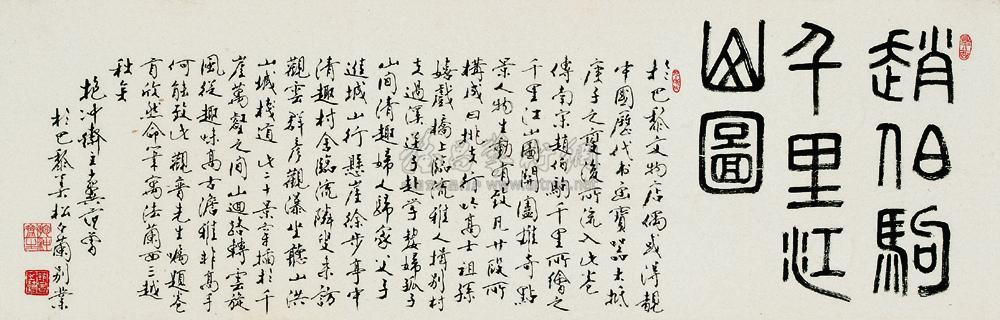 趙伯駒
千里江
山圖
於巴黎文物店偶或得觀
中國歷代書畫寶器大抵
庚子之變後所流入此卷
傳南宋趙伯駒千里所繪之
千里江山圖開圖雄奇點
景人物生動有致凡廿段所
構成曰排支行吟高士祖孫
嬉戲橋上臨流雅人揖別村
支過溪送子赴學嫠婦孤子
山間清趣婦人歸家父子
進城山行懸崖徐步亭中
清趣村舍臨流隣叟來訪
觀雲群彥觀瀑坐聽山洪
山城棧道此二十景穿插於千
崖萬壑之間山迴路轉雲旋
風從趣味高古澹雅非高手
何能致此觀晉先生囑題卷
首欣然命筆寓法蘭西三越
秋矣
抱冲齋主十翼范曾
於巴黎美松白蘭別業